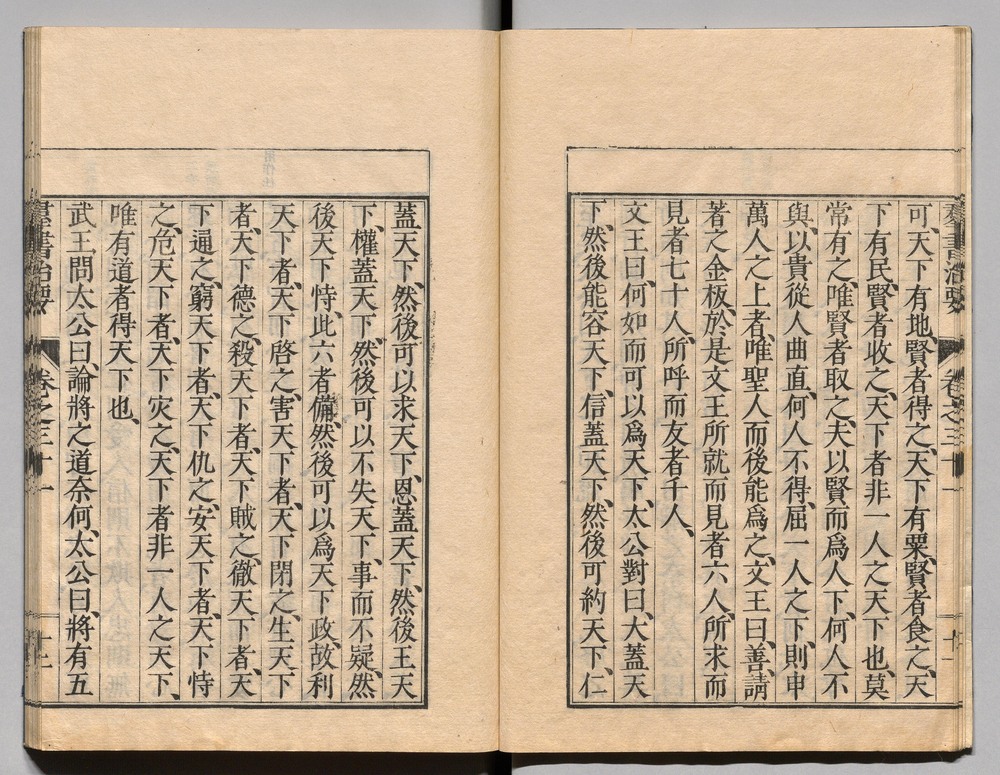 羣書治要 卷之三十一
可、天下有地、賢者得之、天下有粟、賢者食之、天
下有民、賢者收之、天下者非一人之天下也、莫
常有之、唯賢者取之、夫以賢而爲人下、何人不
與、以貴從人曲直、何人不得、屈一人之下、則申
萬人之上者、唯聖人而後能爲之、文王曰、善、請
著之金板、於是文王所就而見者六人、所求而
見者七十人、所呼而友者千人、
文王曰、何如而可以爲天下、太公對曰、大蓋天
下、然後能容天下、信蓋天下、然後可約天下、仁
蓋天下、然後可以求天下、恩蓋天下、然後王天
下、權蓋天下、然後可以不失天下、事而不疑、然
後天下恃、此六者備、然後可以爲天下政、故利
天下者、天下啓之、害天下者、天下閉之、生天下
者、天下德之、殺天下者、天下賊之、徹天下者、天
下通之、窮天下者、天下仇之、安天下者、天下恃
之、危天下者、天下灾之、天下者非一人之天下、
唯有道者得天下也、
武王問太公曰、論將之道奈何、太公曰、將有五
羣書治要 卷之三十一 十二